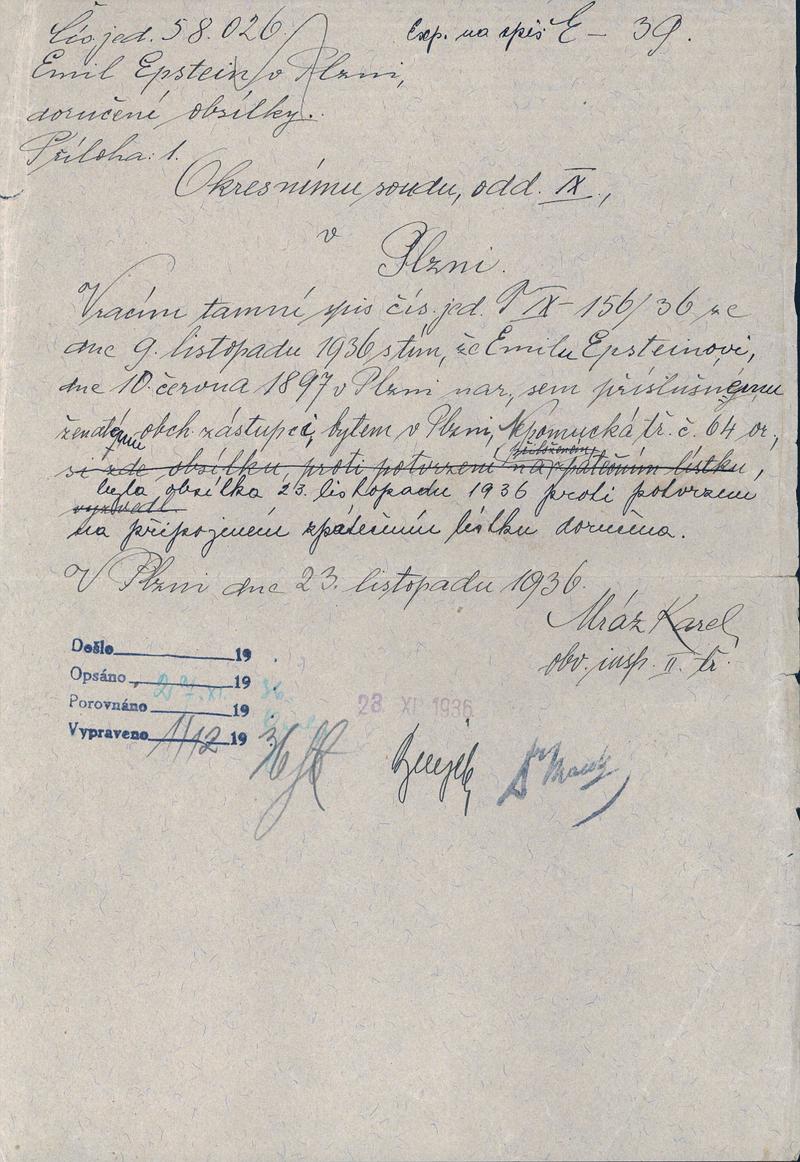 Čís. jed. 58.026.
Exp. na spis E – 39.
Emil Epstein v Plzni,
doručení obsílky.
Příloha: 1.
Okresnímu soudu, odd. IX.,
v
Plzni.
Vracím tamní spis čís. jed. P IX – 156/36 ze
dne 9. listopadu 1936 s tím, že Emilu Epsteinovi,
dne 10. června 1897 v Plzni nar., sem příslušnému
ženatému obch. zástupci, bytem v Plzni, Nepomucká tř. č. 64 or.,
přiloženém
si zde obsílku proti potvrzení na zpátečním lístku,
byla obsílka 23. listopadu 1936 proti potvrzení
vyzvedl.
na připojeném zpátečním lístku doručena.
V Plzni dne 23. listopadu 1936.
Mráz Karel
obv. insp. II. tř.
Došlo 19
Opsáno 19
Porovnáno 19
Vypraveno 1/12 19 36
23. XI. 1936